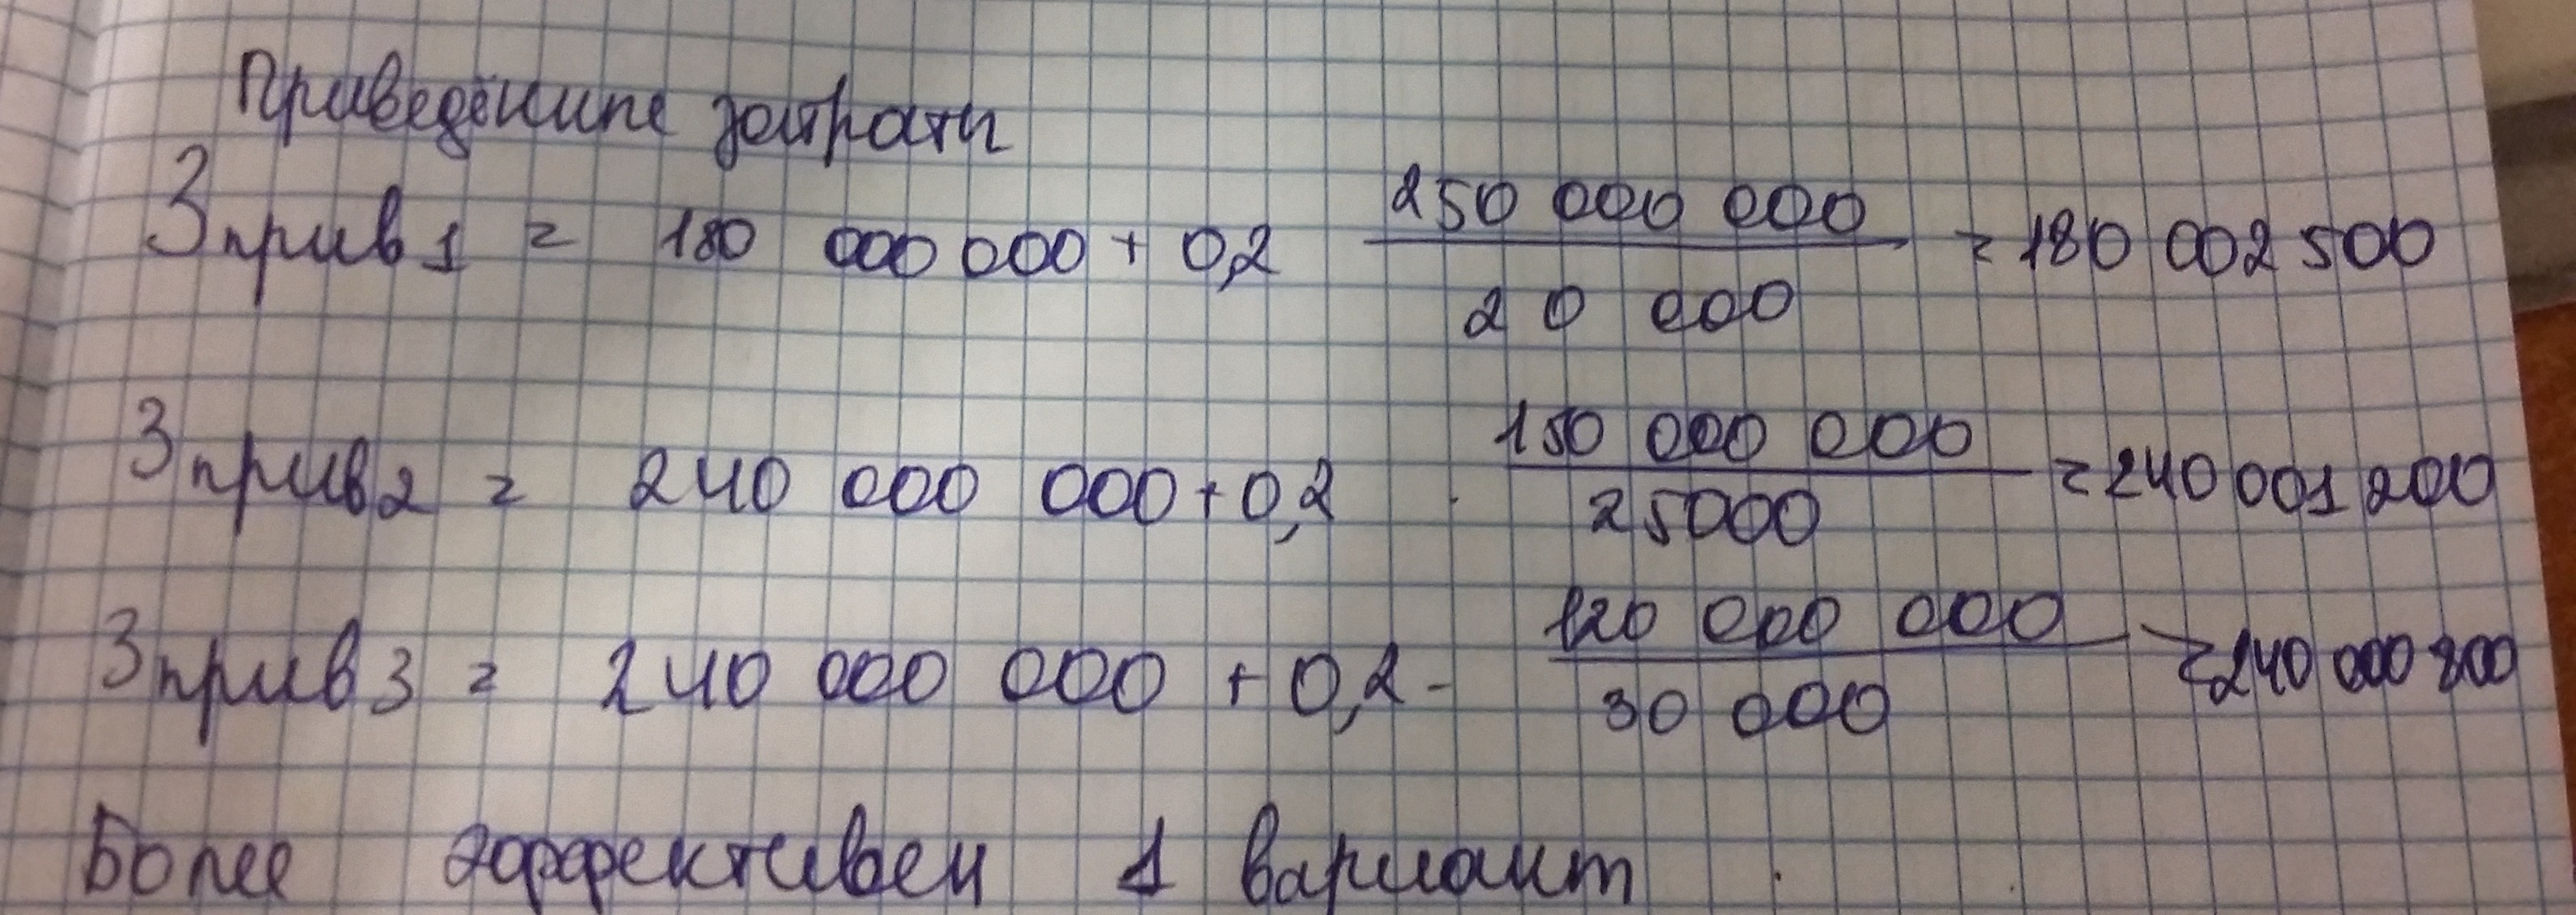 Приведённые затраты
Зприв1 = 180 000 000 + 0,2 250 000 000 / 20 000 = 180 002 500
Зприв2 = 240 000 000 + 0,2 · 150 000 000 / 25000 = 240 001 200
Зприв3 = 240 000 000 + 0,2 - 120 000 000 / 30 000 = 240 000 800
Более эффективен 1 вариант